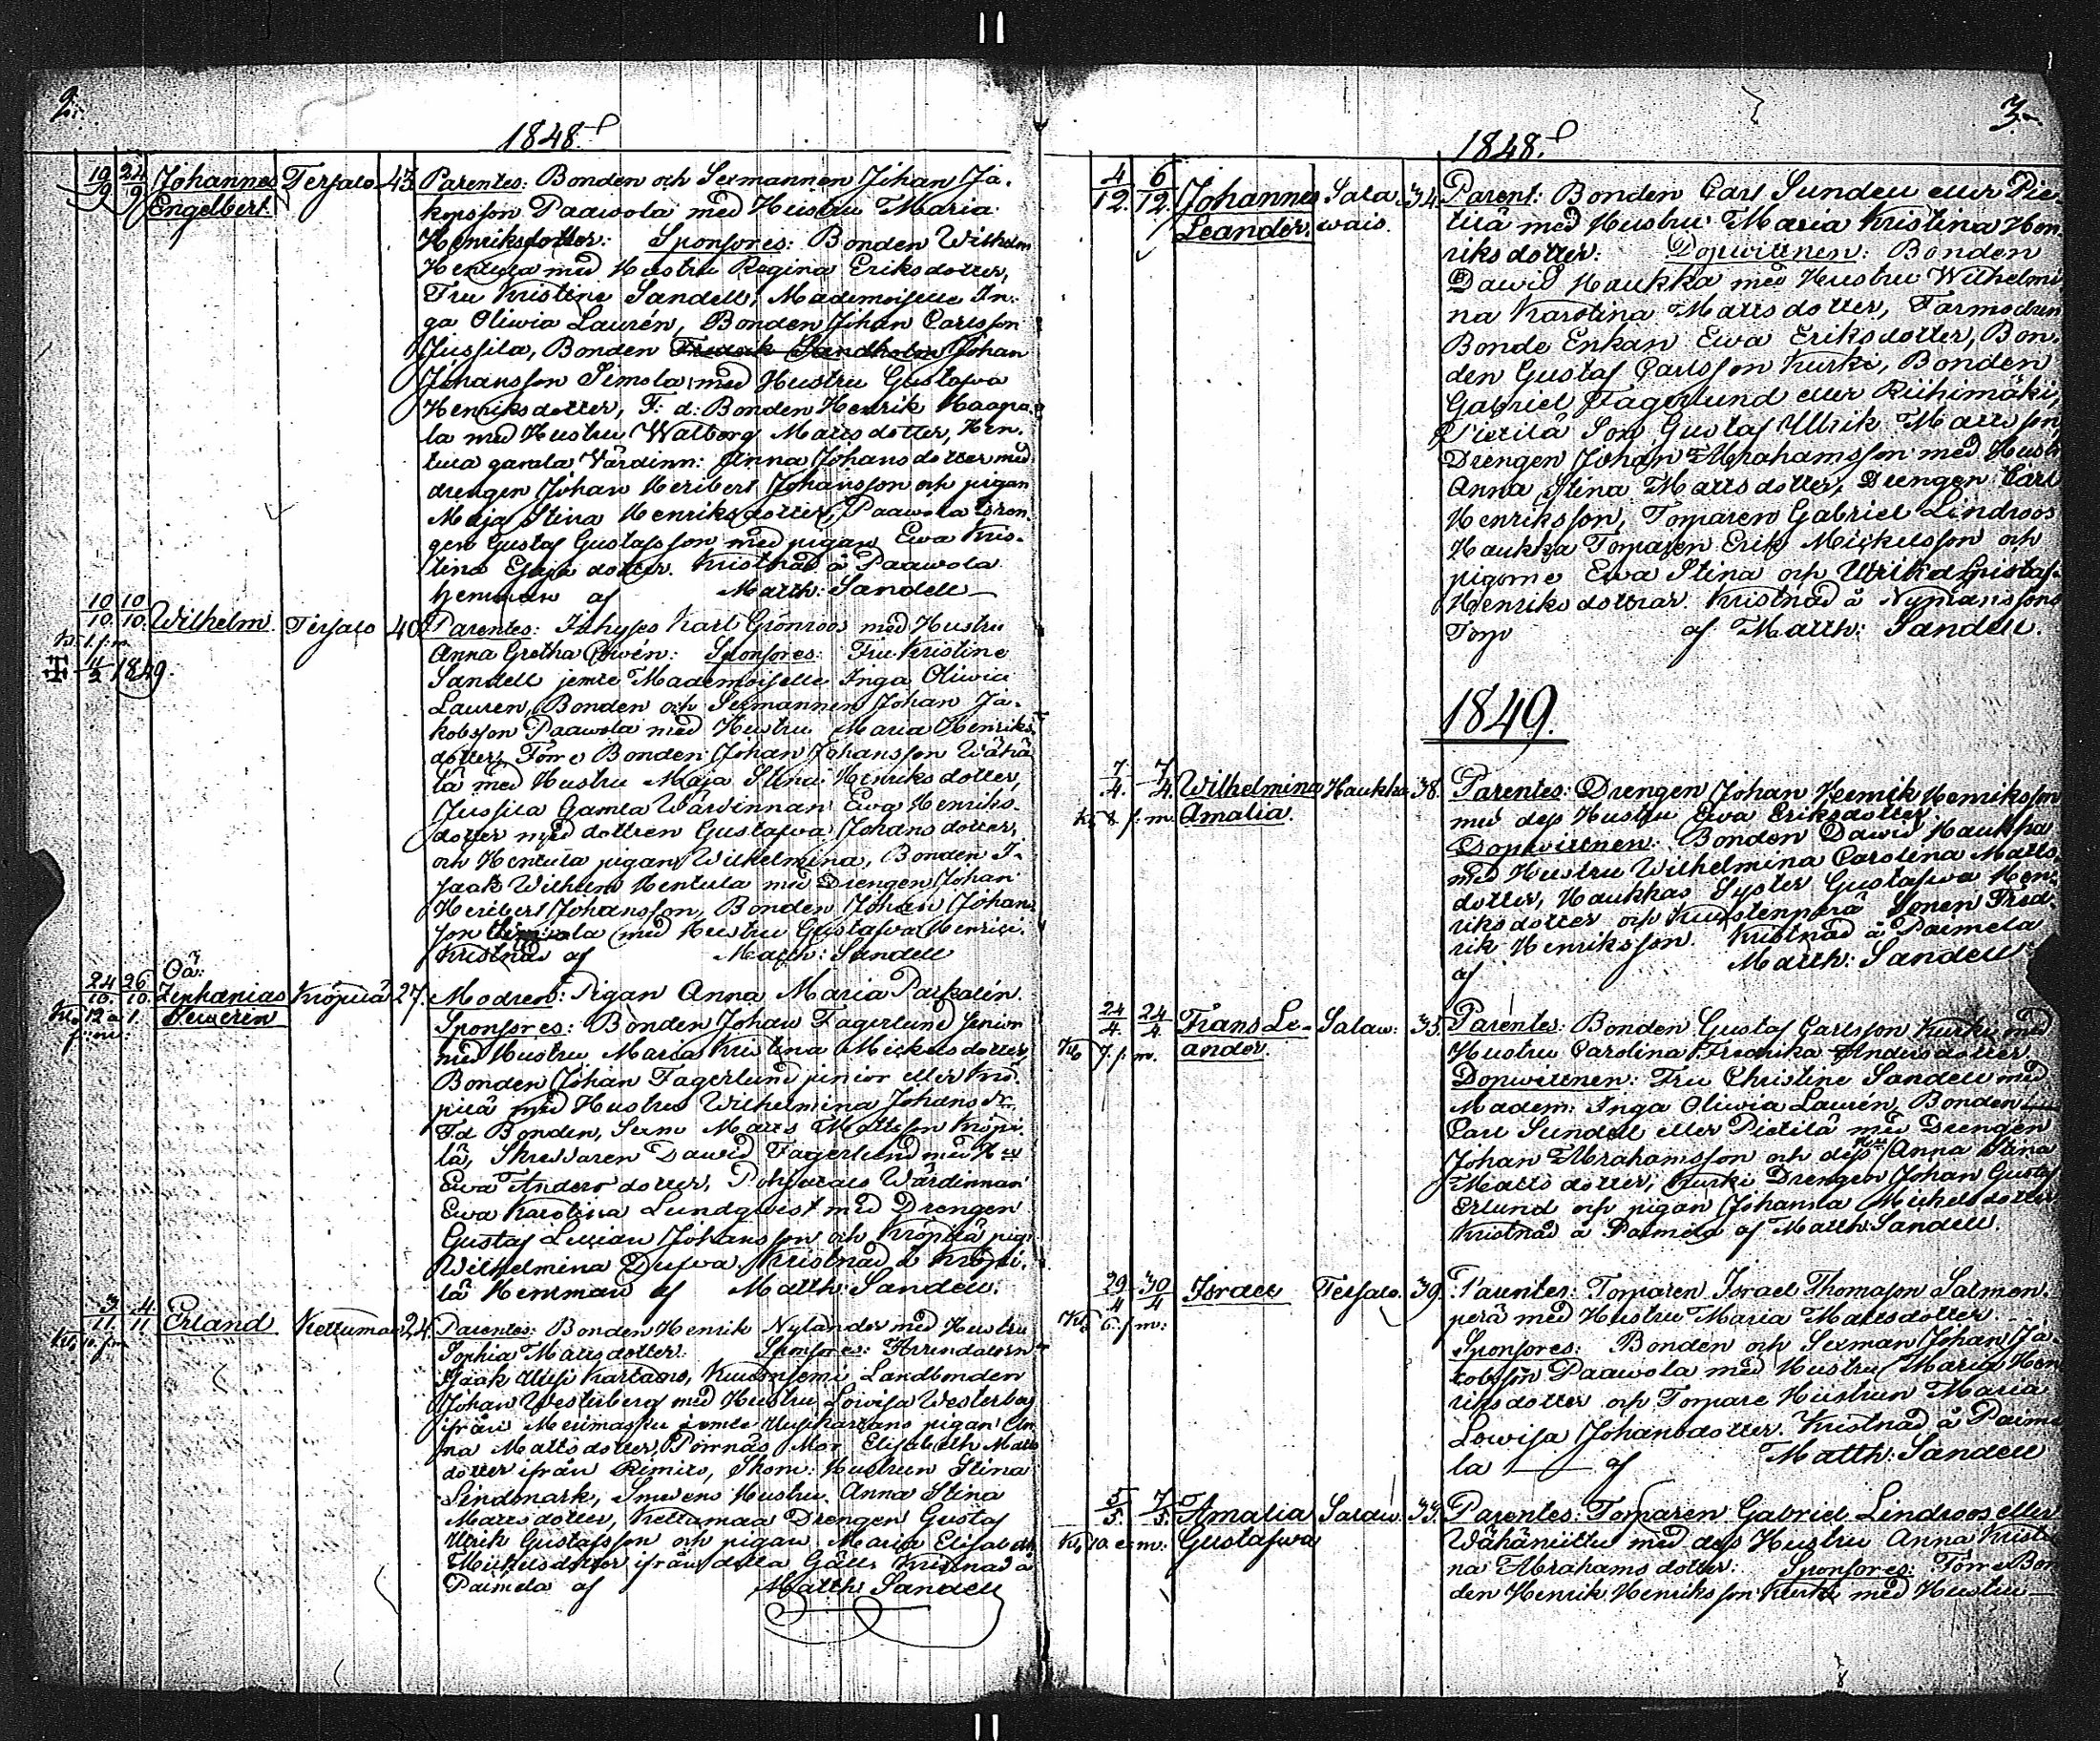 2.
1848.
19/9 24/9 Johannes Tersalo 43 Parentes: Bonden och Sexmannen Johan Ja-
Engelbert. kopsson Paawola med Hustru Maria
Henriksdotter: Sponsores: Bonden Wilhelm
Hentula med Hustru Regina Eriksdotter,
Fru Kristine Sandell, Mademoiselle In-
ga Oliwia Laurén, Bonden Johan Carlsson
Jussila, Bonden Fredrik Sandholm Johan
Johansson Simola med Hustru Gustafwa
Henriksdotter, F: d: Bonden Henrik Haapa-
la med Hustru Walborg Mattsdotter, Hen-
tula gamla Wärdinn: Anna Johansdotter med
drengen Johan Heribert Johansson och pigan
Maja Stina Henriksdotter, Paawola Dren-
gen Gustaf Gustafsson med pigan Ewa Kris-
tina dotter. Kristnad å Paawola
hemman af Matth: Sandell
10/10 10/10. Wilhelm. Tersalo 40 Parentes: Karl Grönroos med Hustru
Kl. 1. f. m. Anna Gretha: Sponsores: Fru Kristine
4/2 1849. Sandell jemte Mademoiselle Inga Oliwia
Lauren, Bonden och Sexmannen Johan Ja-
kobsson Paawola med Hustru Maria Henriks
dotter, Förre Bonden Johan Johansson Wähä
lä med Hustru Maja Stina Henriksdotter,
Jussila Gamla Wärdinnan Ewa Henriks-
dotter med dottren Gustafwa Johansdotter,
och Hentula pigan Wilhelmina, Bonden I-
saak Wilhelm Hentula med Drengen Johan
Heribert Johansson, Bonden Johan Johans
son Simola med Hustru Gustafwa Henrici.
Kristnad af Matth: Sandell
Oä:
24/10. 26/10. Zephanias Kröpilä 27. Modren: Pigan Anna Maria Palkalén.
Kl. 12 a 1. Sewerin Sponsores: Bonden Johan Fagerlund Senior
f: m: med Hustru Maria Kristina Mickelsdotter,
Bonden Johan Fagerlund junior eller Krö-
pilä med Hustru Wilhelmina Johansdr.
F.d Bonden, Sexm Matts Mattsson Kröpi-
lä, Skredaren Dawid Fagerlund med Hu
Ewa Andersdotter, Pohjatalo Wärdinnan
Ewa Karolina Lundqwist med Drengen
Gustaf Lucian Johansson och Kröpilä pig:
Wilhelmina Dufwa. Kristnad å Kröpi-
lä Hemman af Matth: Sandell.
3/11 4/11 Erland Kettumaa 24. Parentes: Bonden Henrik Nylander med Hustru
Kl. 10. f. m Sophia Mattsdotter: Sponsores: Arrendatorn
Isaak Alusi Kartano, Kuusniemi Landbonden
Johan Westerberg med Hustru Lowisa Westerberg
ifrån Merimasku jemte Kartano pigan An
na Mattsdotter, Mor Elisabeth Matts
dotter ifrån Rimito, Skom: Hustrun Stina
Lindmark, Smedens Hustru Anna Stina
Mattsdotter, Kettumaa Drengen Gustaf
Ulrik Gustafsson och pigan Maria Elisabeth
Mickelsdotter ifrån detta Gäll. Kristnad å
Paimela af Matth: Sandell
3.
1848.
4/12. 6/12. Johannes Sala- 34. Parent: Bonden Carl Sundell eller Pie-
Leander. wais. tilä med Hustru Maria Kristina Hen-
riksdotter: Dopwittnen: Bonden
Dawid Haukka med Hustru Wilhelmi
na Karolina Mattsdotter, Farmodren
Bonde Enkan Ewa Eriksdotter, Bon-
den Gustaf Carlsson Kurki, Bonden
Gabriel Fagerlund eller Riihimäki,
Pietilä Son Gustaf Ulrik Mattsson,
Drengen Johan Abrahamsson med Hustr
Anna Stina Mattsdotter, Drengen Carl
Henriksson, Torparen Gabriel Lindroos
Haukka Torparen Erik Mickelsson och
pigorne Ewa Stina och Ulrika Gustaf-
Henriksdottrar. Kristnad å Nymanssons
Torp af Matth: Sandell.
1849.
7/4. 7/4. Wilhelmina Haukka 38. Parentes: Drengen Johan Henrik Henriksson
Kl. 8. f. m. Amalia. med dess Hustru Ewa Eriksdotter.
Dopwittnen: Bonden Dawid Haukka
med Hustru Wilhelmina Carolina Matts
dotter, Haukkas Syster Gustafwa Hen-
riksdotter och Kuustenperä Sonen Fred-
rik Henriksson. Kristnad å Paimela
af Matth: Sandell
24/4. 24/4 Frans Le- Salaw: 35. Parentes: Bonden Gustaf Carlsson Kurki med
Kl. 7. f. m. ander. Hustru Carolina Fredrika Andersdotter.
Dopwittnen: Fru Christine Sandell med
Madem: Inga Oliwia Laurén, Bonden
Carl Sundell eller Pietilä med Drengen
Johan Abrahamsson och dess Hu Anna Stina
Mattsdotter, Kurki Drengen Johan Gustaf
Erlund och pigan Johanna Mickelsdotter
Kristnad å Paimela af Matth: Sandell.
29/4 30/4 Israel Tersalo. 39. Parentes: Torparen Israel Thomasson Salmen-
Kl. 6. f m: perä med Hustru Maria Mattsdotter.
Sponsores: Bonden och Sexman Johan Ja-
kobsson Paawola med Hustru Maria Hen
riksdotter och Torpare Hustrun Maria
Lowisa Johansdotter. Kristnad å Paime
la af Matth: Sandell
5/5. 7/5. Amalia Salaw. 33. Parentes: Torparen Gabriel Lindroos eller
Kl. 10 e: m: Gustafwa Wähäniittu med dess Hustru Anna Kristi
na Abrahamsdotter: Sponsores: Förre Bon
den Henrik Henriksson Kurki med Hustru